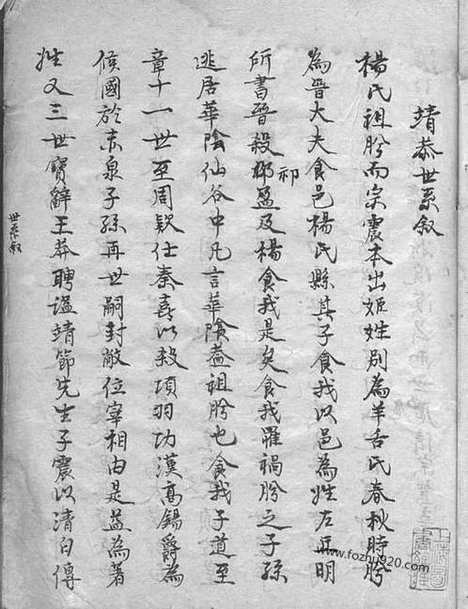 靖恭世系叙
楊氏祖肸而宗震本出姬姓别為羊舌氏春秋時肸
為晉大夫食邑楊氏縣其子食我以邑為姓左丘明
所書晉殺祁盈及楊食我是矣食我罹禍肸之子孫
逃居華陰仙谷中凡言華陰者祖肸也食我子道至
章十一世至周欵仕秦喜以殺項羽功漢高錫爵為
侯國於赤泉子孫再世嗣封敞位宰相由是益為著
姓又三世寶辭王莽聘謚靖節先生子震以清白傳
世系叙
www.fozhu920.com